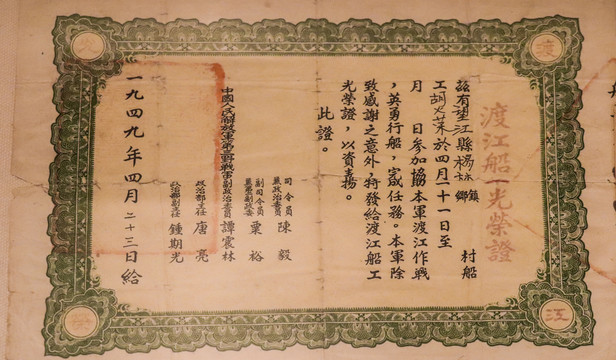 渡江船工光榮證
茲有望江縣楊林鎮鄉　村船
工胡火萊於四月二十一日至
月　日參加協本軍渡江作戰
，英勇行船，完成任務。本軍除
致感謝之意外，特發給渡江船工
光榮證，以資表揚。
此證。
司令員
兼政治委員 陳毅
副司令員
兼第二副政委 粟裕
中國人民解放軍第三野戰軍副政治委員 譚震林
政治部主任 唐亮
政治部副主任 鍾期光
一九四九年四月二十三日給
渡
江